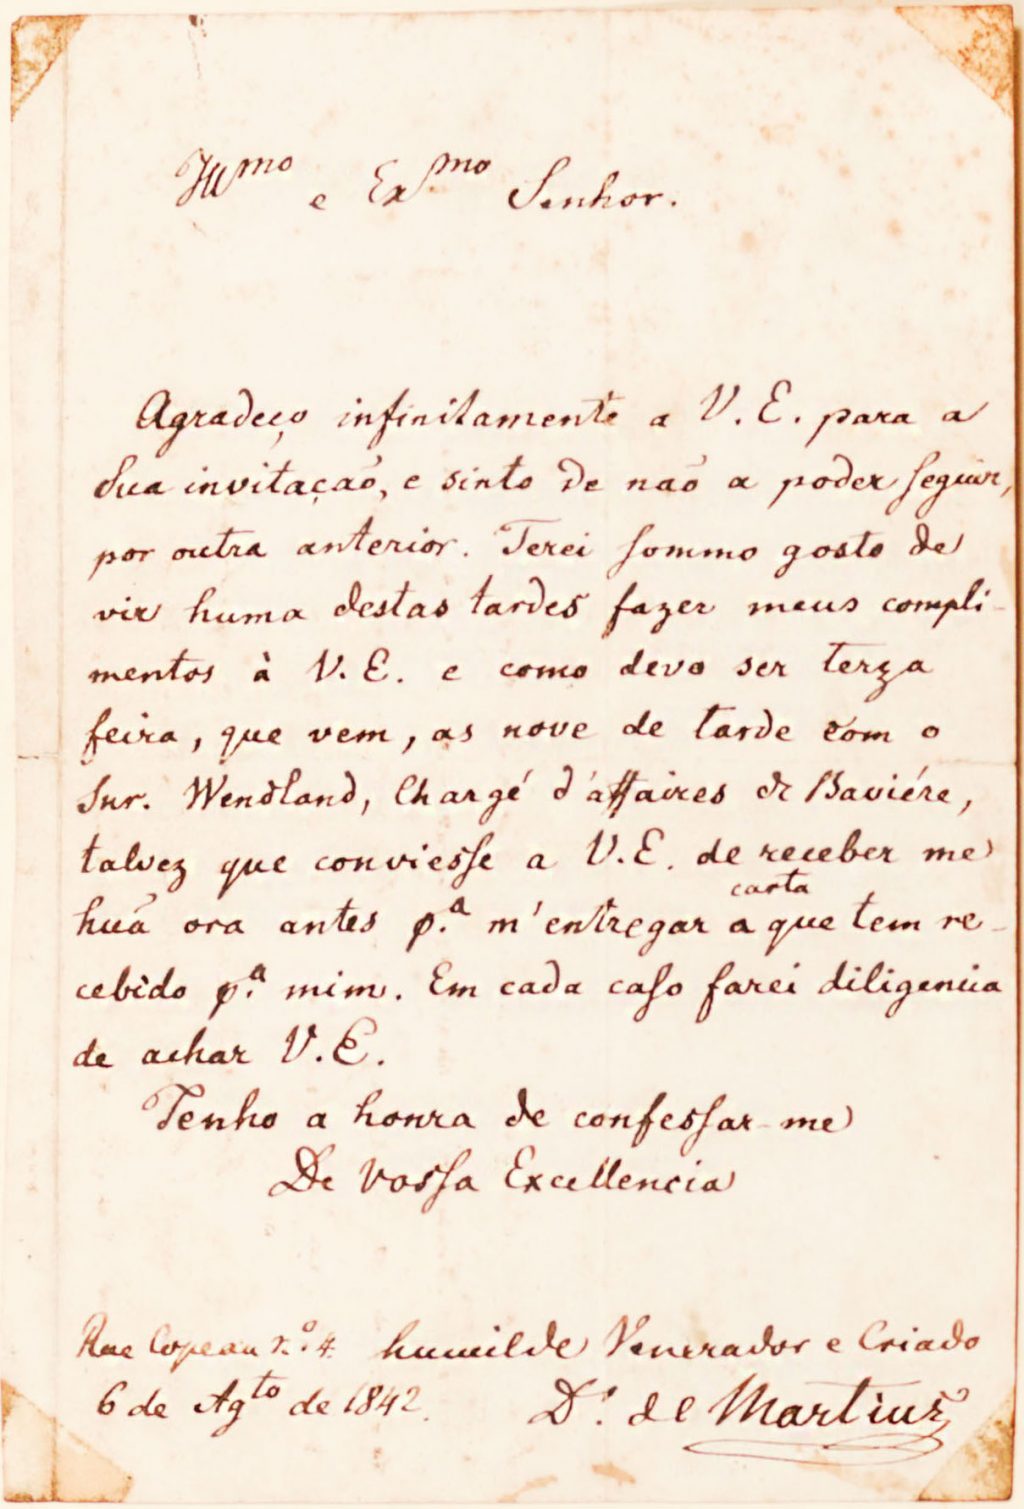 Illmo e Exmo Senhor.
Agradeço infinitamente a V. E. para a
Sua invitação, e sinto de não a poder seguir,
por outra anterior. Terei sommo gosto de
vir huma destas tardes fazer meus compli-
mentos à V. E. e como devo ser terza
feira, que vem, as nove de tarde com o
Snr. Wendland, Chargé d'affaires de Baviére,
talvez que conviesse a V. E. de receber me
huã ora antes p.a m'entregar a carta que tem re-
cebido p.a mim. Em cada caso farei diligencia
de achar V. E.
Tenho a honra de confessar-me
De Vossa Excellencia
Rue Copeau n.o 4. humilde Venerador e Criado
6 de Agto de 1842. Dr. de Martius